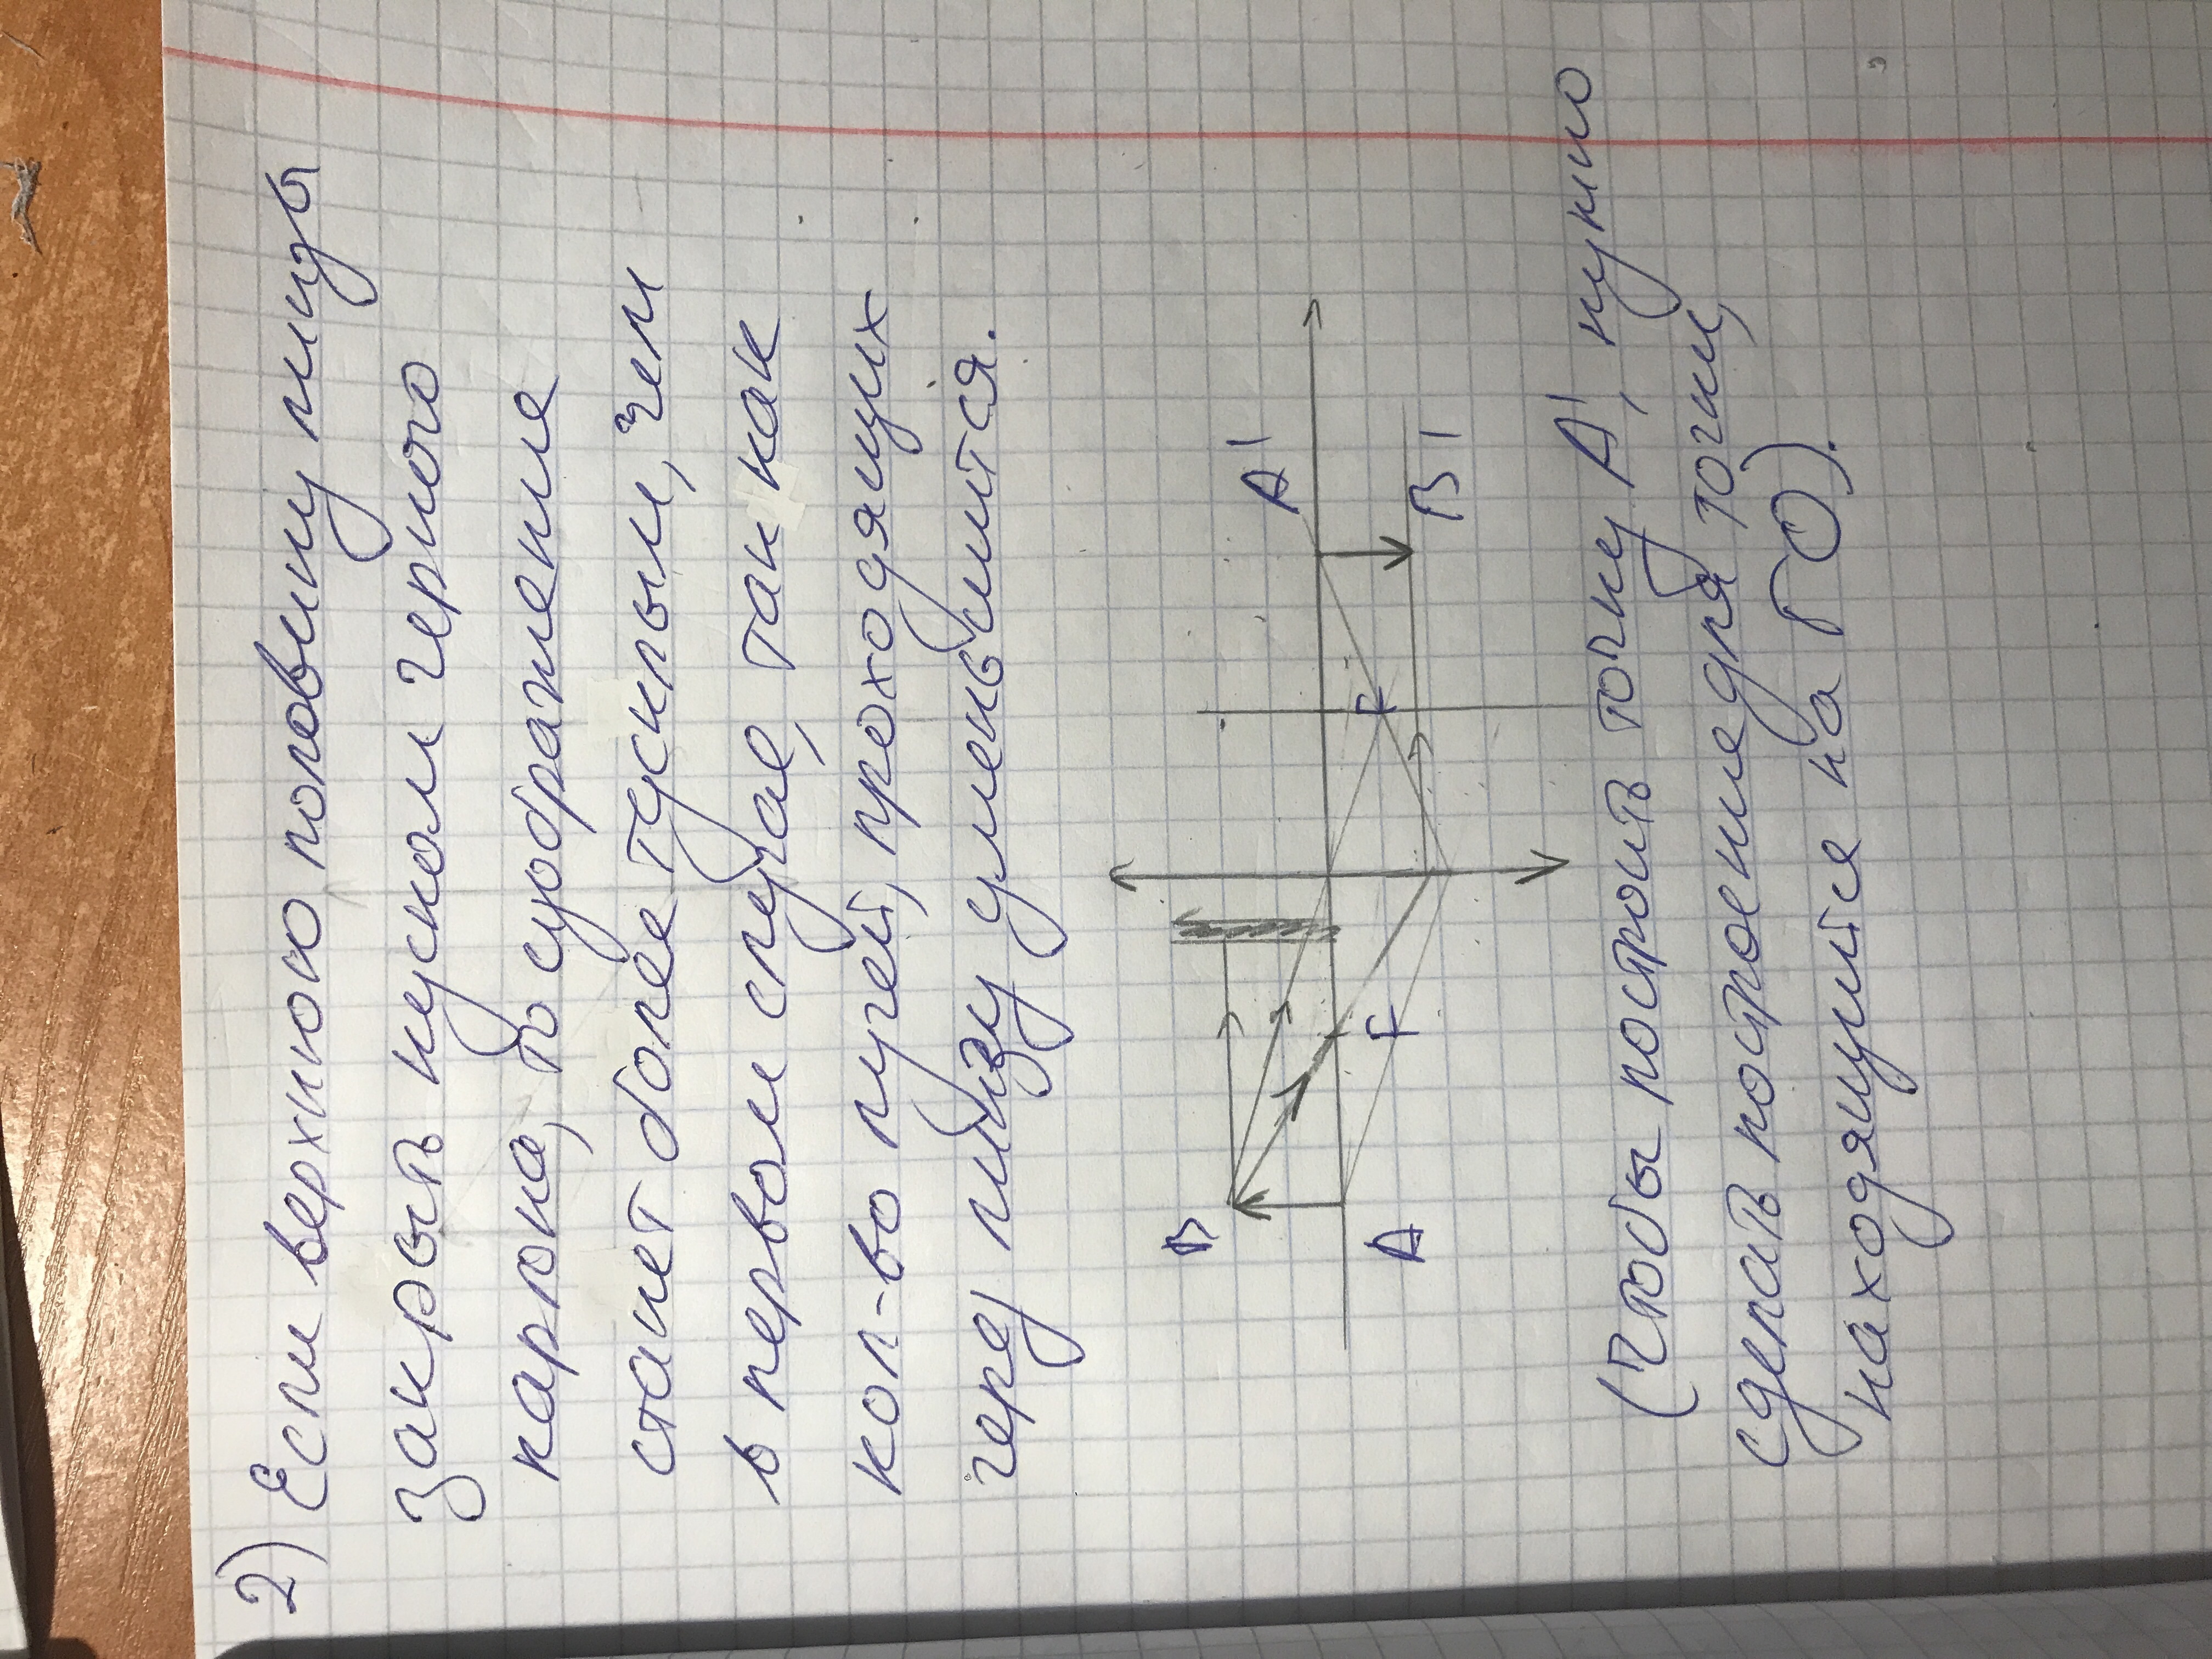 2) Если верхнюю половину линзы
закрыть куском черного
картона, то изображение
станет более тусклым, чем
в первом случае, так как
кол-во лучей, проходящих
через линзу уменьшится.
B
A'
F
F
A
B'
(Чтобы построить точку A', нужно
сделать построение для точки,
находящийся на ГО).